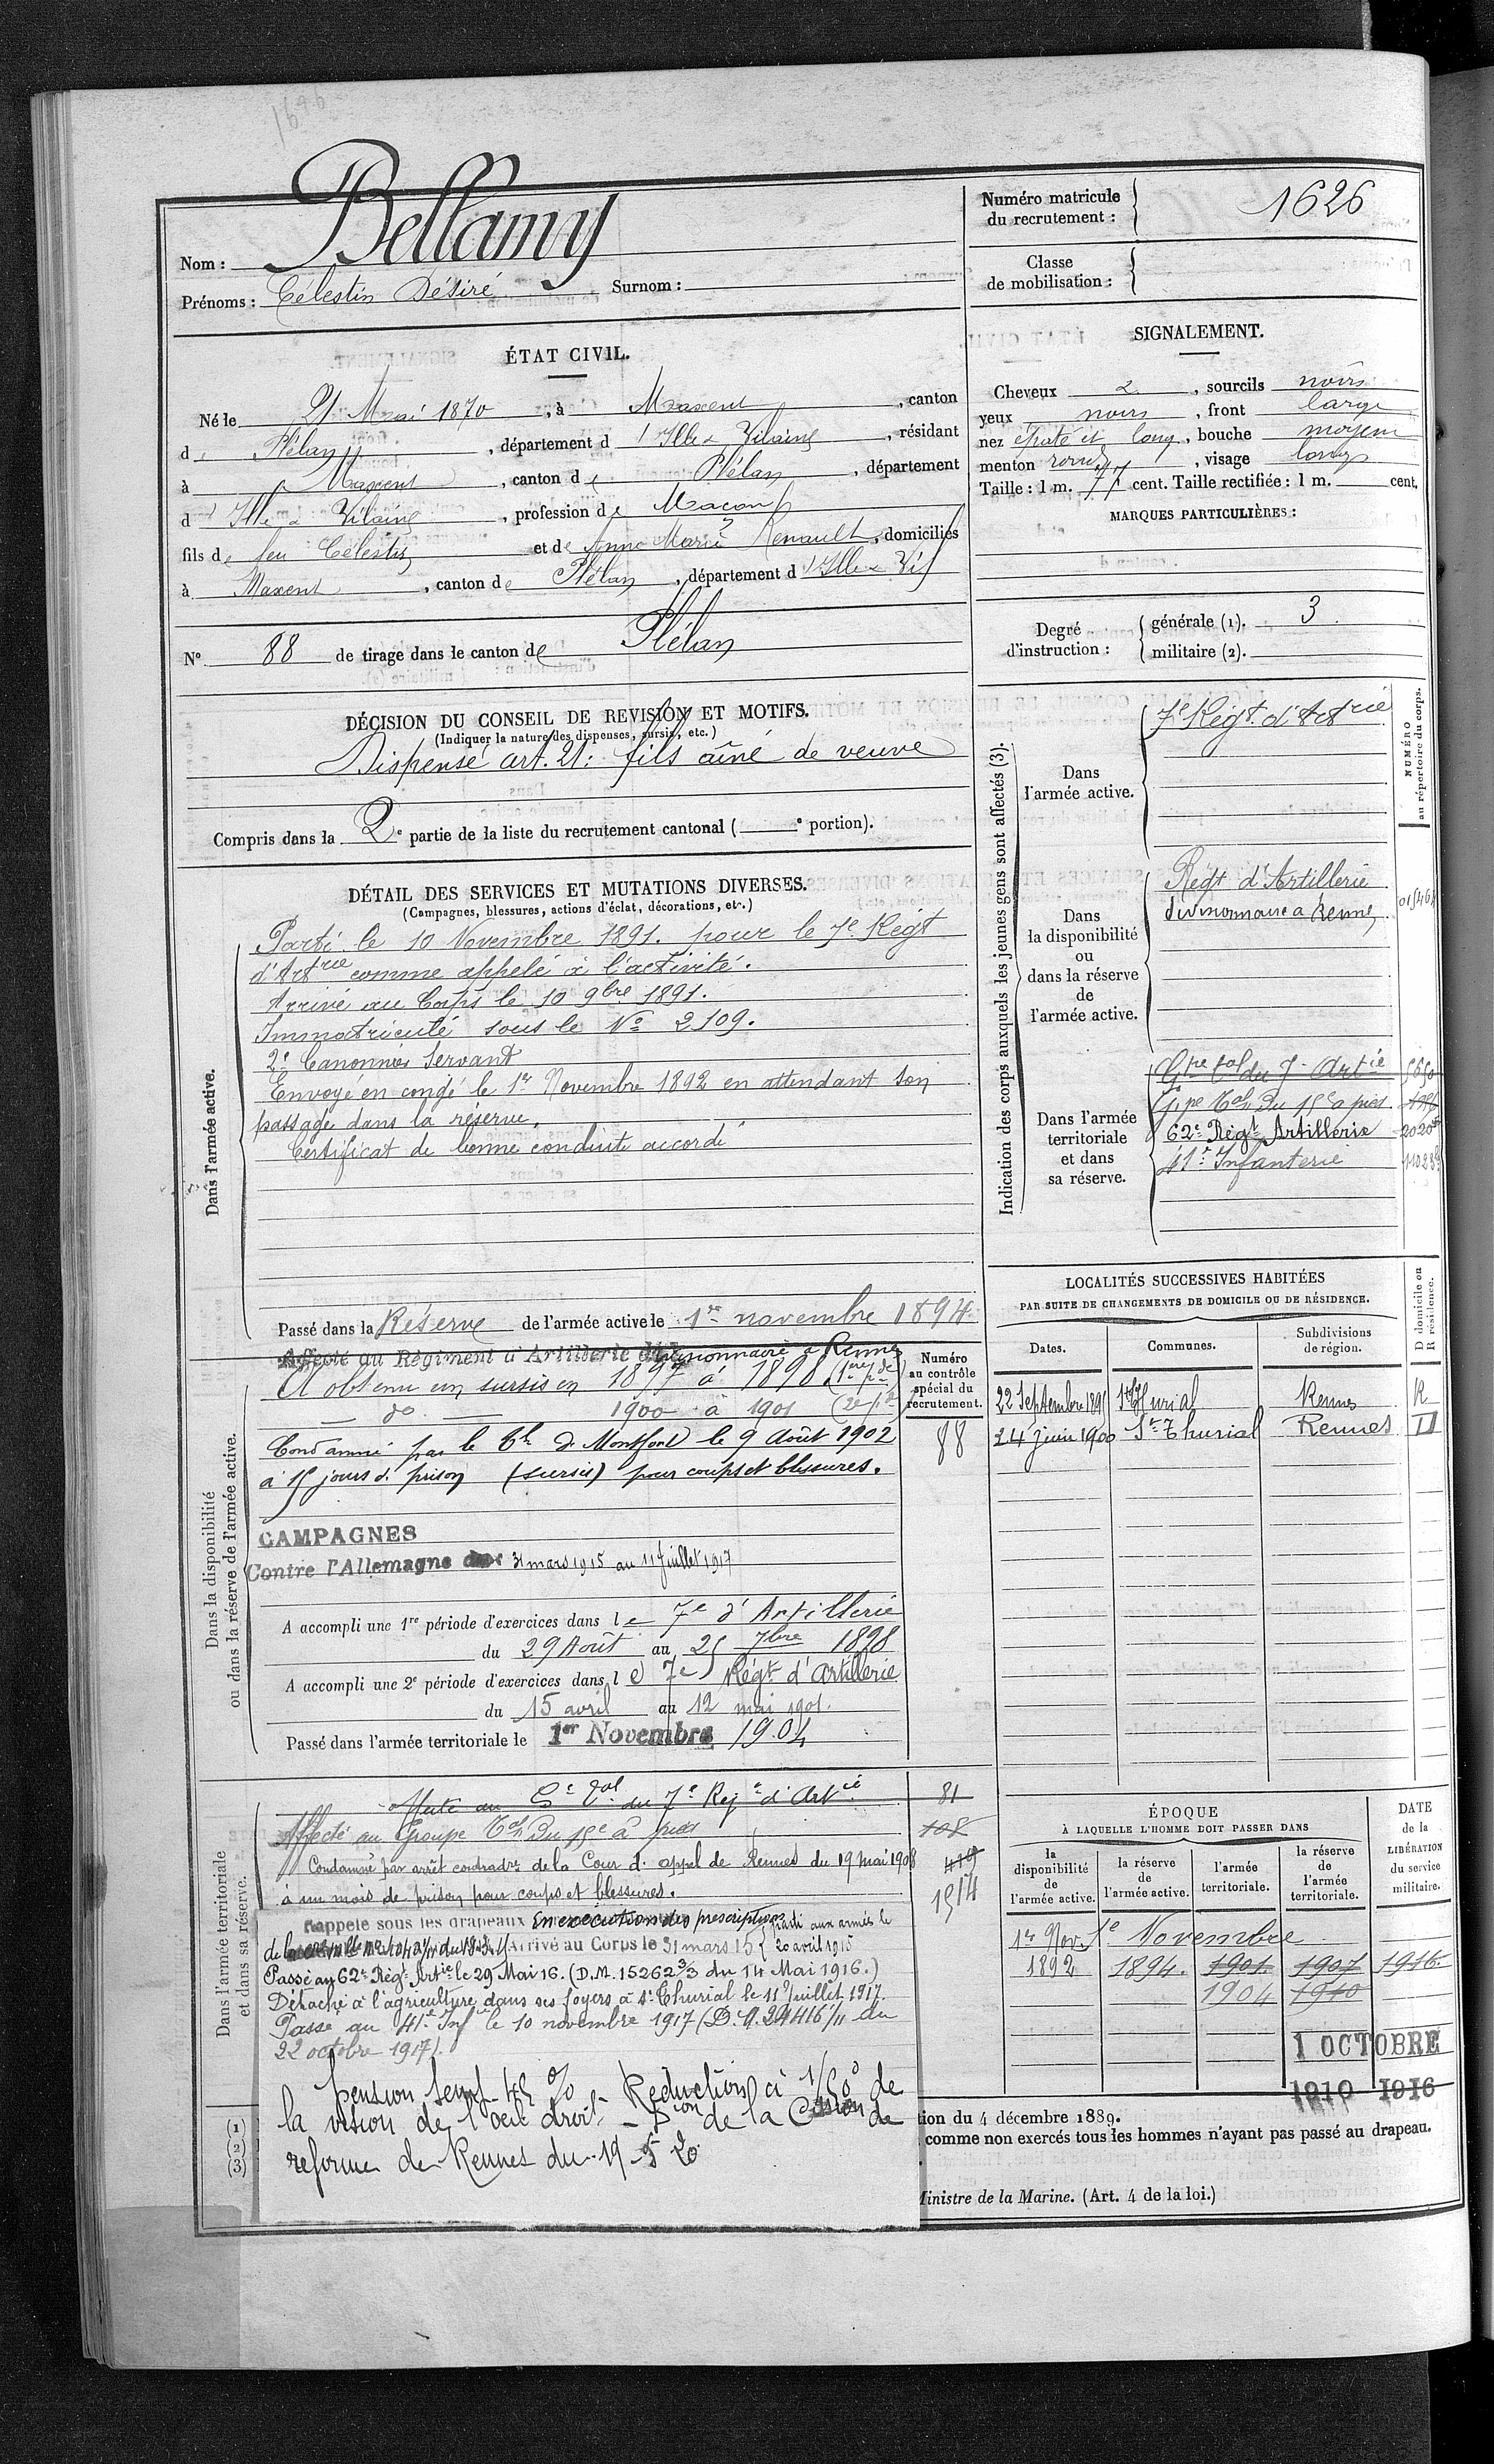 Bellamy
Nom :
Prénoms : Célestin Désiré Surnom :
Numéro matricule
du recrutement :
1626
Classe
de mobilisation :
ÉTAT CIVIL.
Né le 21 Mai 1870, à Maxent, canton
de Plélan, département d'Ille & Vilaine, résidant
à Maxent, canton de Plélan, département
d'Ille & Vilaine, profession de Maçon
fils de feu Célestin et de Anne Marie Renault, domiciliés
à Maxent, canton de Plélan, département d'Ille & Vil
N° 88 de tirage dans le canton de Plélan
SIGNALEMENT.
Cheveux &, sourcils noirs
yeux noirs, front large
nez épaté et long, bouche moyenne
menton rond, visage long
Taille : 1 m. 77 cent. Taille rectifiée : 1 m. cent.
MARQUES PARTICULIÈRES :
Degré
d'instruction :
générale (1). 3
militaire (2).
DÉCISION DU CONSEIL DE REVISION ET MOTIFS.
(Indiquer la nature des dispenses, sursis, etc.)
Dispensé art. 21: fils aîné de veuve
Compris dans la 2e partie de la liste du recrutement cantonal ( e portion).
DÉTAIL DES SERVICES ET MUTATIONS DIVERSES.
(Campagnes, blessures, actions d'éclat, décorations, etc.)
Dans l'armée active.
Parti le 10 Novembre 1891. pour le 7e Régt
d'Artrie comme appelé à l'activité.
Arrivé au Corps le 10 9bre 1891.
Immatriculé sous le No 2109.
2e Canonnier Servant
Envoyé en congé le 1er Novembre 1892 en attendant son
passage dans la réserve.
Certificat de bonne conduite accordé
Passé dans la Réserve de l'armée active le 1er novembre 1894.
Indication des corps auxquels les jeunes gens sont affectés (3).
NUMÉRO
au répertoire du corps.
Dans
l'armée active.
7e Régt d'Artrie
Dans
la disponibilité
ou
dans la réserve
de
l'armée active.
Régt d'Artillerie
divisionnaire à Rennes
Dans l'armée
territoriale
et dans
sa réserve.
Gpe tal du 7e Artie
5650
Gpe tal du 15e à pied
62e Régt Artillerie
41e Infanterie
Dans la disponibilité
ou dans la réserve de l'armée active.
Affecté au Régiment d'Artillerie divisionnaire à Rennes
A obtenu un sursis en 1897 à 1898 (1ère pde)
do 1900 à 1901 (2e pde)
Condamné par le tal de Montfort le 9 Août 1902
à 15 jours de prison (sursis) pour coups et blessures.
CAMPAGNES
Contre l'Allemagne du 31 mars 1915 au 11 Juillet 1917
A accompli une 1re période d'exercices dans le 7e d'Artillerie
du 29 Août au 25 7bre 1898
A accompli une 2e période d'exercices dans le 7e Régt d'Artillerie
du 15 avril au 12 mai 1901.
Passé dans l'armée territoriale le 1er Novembre 1904
Numéro
au contrôle
spécial du
recrutement.
88
LOCALITÉS SUCCESSIVES HABITÉES
PAR SUITE DE CHANGEMENTS DE DOMICILE OU DE RÉSIDENCE.
Dates. Communes. Subdivisions
de région.
D domicile ou
R résidence.
22 Septembre 1891 St Thurial Rennes R
24 juin 1900 St Thurial Rennes D
Dans l'armée territoriale
et dans sa réserve.
Affecté au Gpe tal du 7e Régt d'Artie 81
Affecté au Groupe tal du 15e à pied 108
Condamné par arrêt contradre de la Cour d'appel de Rennes du 19 mai 1908
à un mois de prison pour coups et blessures.
1514
Rappelé sous les drapeaux En exécution des prescriptions
Arrivé au Corps le 31 mars 15 Parti aux armées le
20 avril 1915
Passé au 62e Régt Artie le 29 Mai 16. (D.M. 15262 3/3 du 14 Mai 1916.)
Détaché à l'agriculture dans ses foyers à St Thurial le 11 Juillet 1917.
Passé au 41e Inf le 10 novembre 1917 (D.M. 24416/11 du
22 octobre 1917).
Réduction à 1/50 de
la vision de l'oeil droit - Don de la Csion de
réforme de Rennes du 19-5 20
ÉPOQUE
À LAQUELLE L'HOMME DOIT PASSER DANS
DATE
de la
LIBÉRATION
du service
militaire.
la
disponibilité
de
l'armée active.
la réserve
de
l'armée active.
l'armée
territoriale.
la réserve
de
l'armée
territoriale.
1er Nov. 1er Novembre
1892 1894. 1901 1907 1916.
1904 1910
1 OCTOBRE
1910 1916
(1)
(2)
(3)
tion du 4 décembre 1889.
comme non exercés tous les hommes n'ayant pas passé au drapeau.
Ministre de la Marine. (Art. 4 de la loi.)